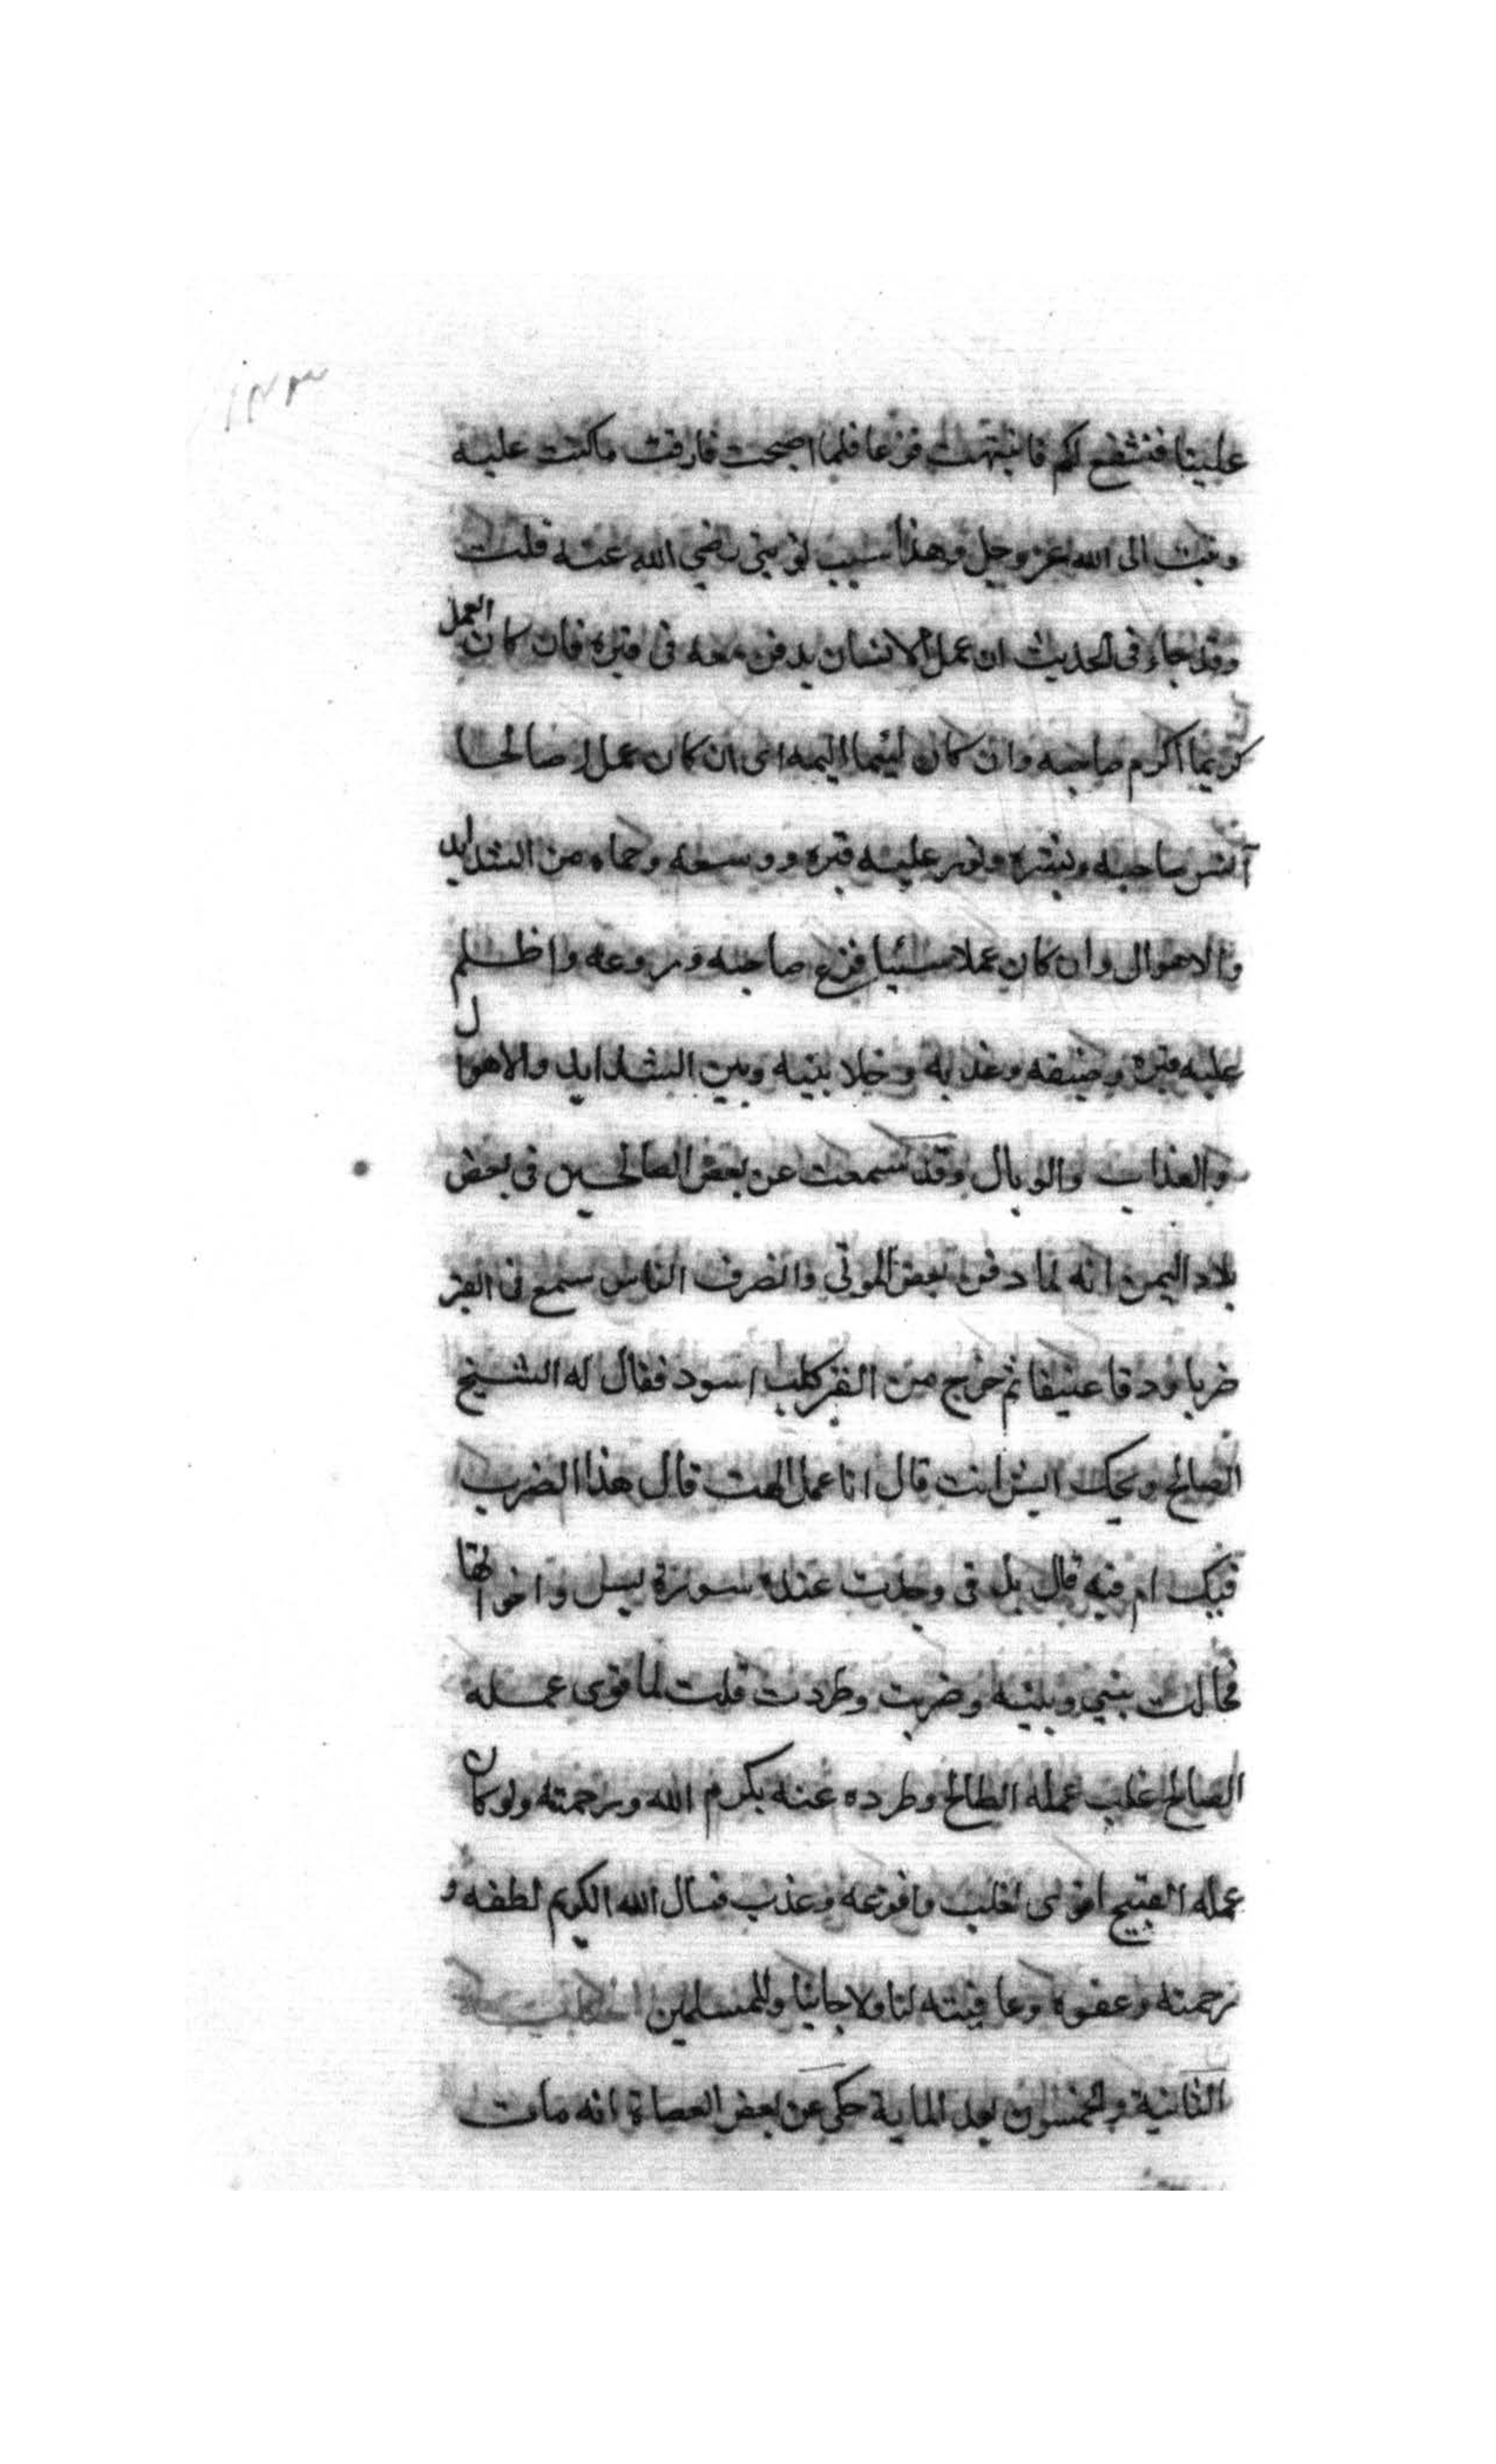 ١٤٣
علينا فنشفع لكم فانتبهت فزعا فلما اصبحت فارقت ما كنت عليه
وتبت الى الله عز وجل وهذا سبب توبتي رضي الله عنه قلت
وقد جاء في الحديث ان عمل الانسان يدفن معه في قبره فان كان العمل
كريما اكرم صاحبه وان كان لئيما اليمه اى ان كان عملا صالحا
آنس صاحبه وبشره ونور عليه قبره ووسعه وحماه من الشدايد
والاهوال وان كان عملا سيئا فزع صاحبه وروعه واظلم
عليه قبره وضيقه وعذبه وخلا بينه وبين الشدايد والاهوال
والعذاب والوبال وقد سمعت عن بعض الصالحين في بعض
بلاد اليمن انه لما دفن بعض الموتى وانصرف الناس سمع في القبر
ضربا ودقا عنيفا ثم خرج من القبر كلب اسود فقال له الشيخ
الصالح ويحك ايش انت قال انا عمل الميت قال هذا الضرب
فيك ام فيه قال بل في وجدت عنده سورة يس واخواتها
فحالت بيني وبينه وضربت وطردت قلت لما قوى عمله
الصالح غلب عمله الطالح وطرده عنه بكرم الله ورحمته ولو كان
عمله القبيح اقوى لغلب وافزعه وعذب فنسال الله الكريم لطفه و
رحمته وعفوه وعافيته لنا ولاحبابنا وللمسلمين الحكاية
الثانية والخمسون بعد الماية حكى عن بعض العصاة انه مات